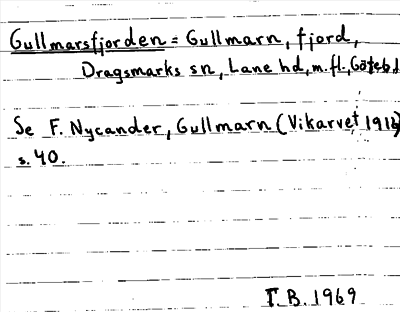 Gullmarsfjorden = Gullmarn, fjord,
Dragsmarks sn, Lane hd, m.fl., Göteb.l
Se F. Nycander, Gullmarn (Vikarvet
s. 40.
T.B. 1969